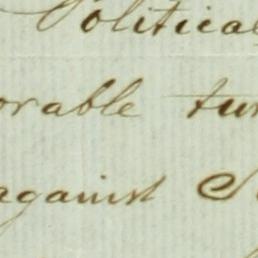 Political
orable tur
against S